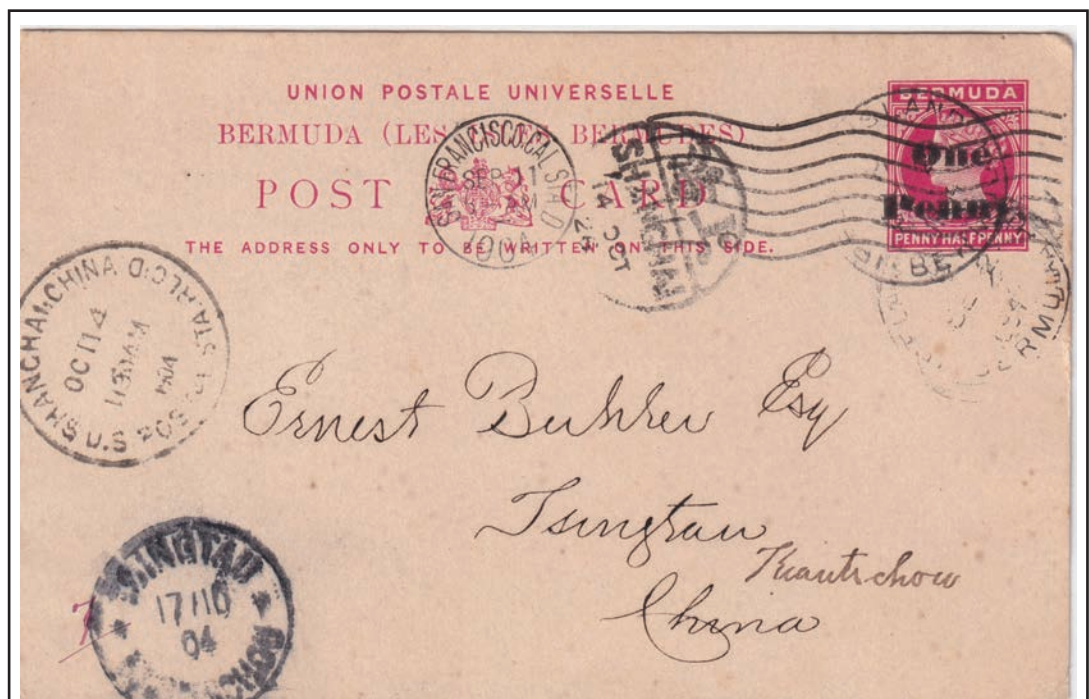 UNION POSTALE UNIVERSELLE
BERMUDA (LES BERMUDES)
POST CARD
THE ADDRESS ONLY TO BE WRITTEN ON THIS SIDE.
BERMUDA
One
Penny
PENNY HALFPENNY
SAN FRANCISCO.CAL. STA.D
SEP 11
SHANGHAI
14 OCT
SHANGHAI, CHINA
OCT 14
1904
U.S
TSINGTAU
17/10
04
Ernest Buhrer Esq
Tsingtau
Kiautschow
China